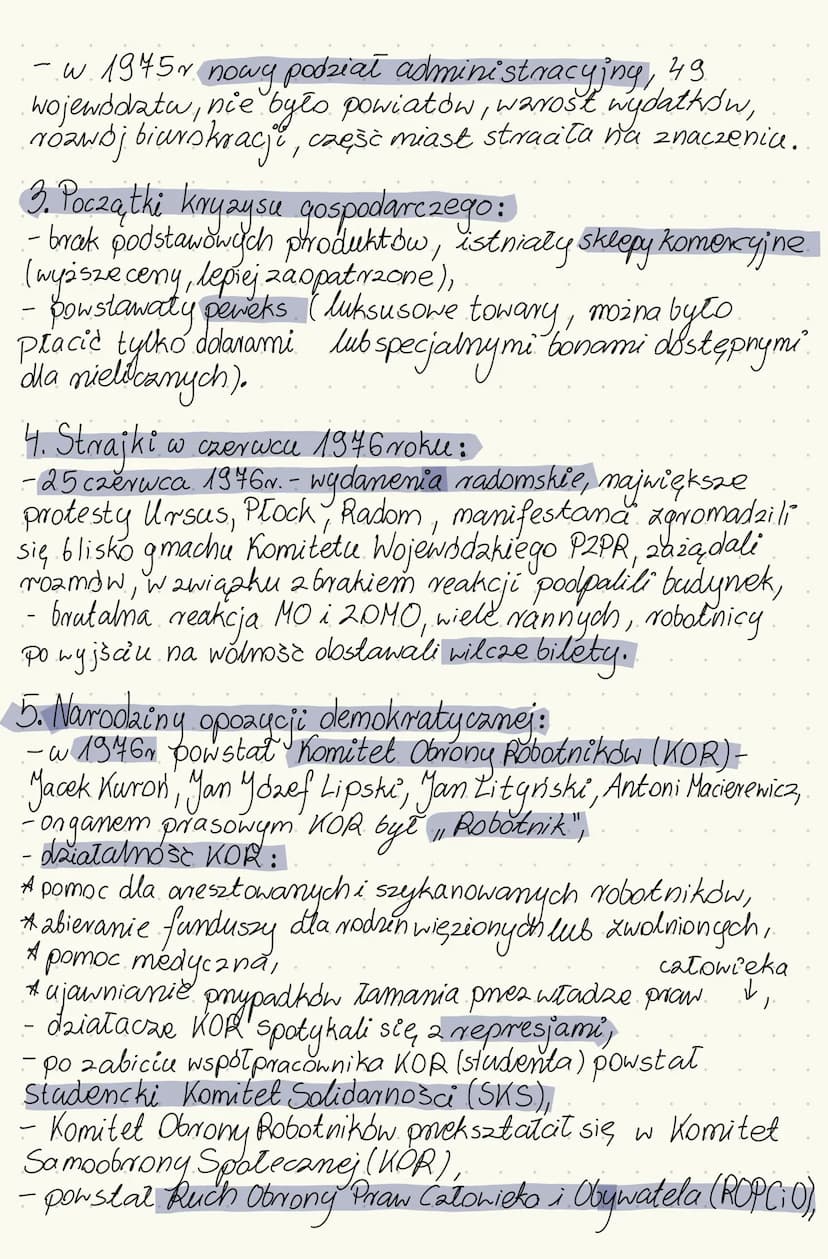 - w 1975r nowy podział administracyjny, 49
województw, nie było powiatów, wzrost wydatków,
rozwój biurokracji, część miast straciła na znaczeniu.
3. Początki kryzysu gospodarczego:
- brak podstawowych produktów, istniały sklepy komercyjne
(wyższe ceny, lepiej zaopatrzone),
- powstawały peweks (luksusowe towary, można było
płacić tylko dolarami lub specjalnymi bonami dostępnymi
dla nielicznych).
4. Strajki w czerwcu 1976 roku:
- 25 czerwca 1976r. - wydarzenia radomskie, największe
protesty Ursus, Płock, Radom, manifestanci zgromadzili
się blisko gmachu Komitetu Wojewódzkiego PZPR, zażądali
rozmów, w związku z brakiem reakcji podpalili budynek,
- brutalna reakcja MO i ZOMO, wiele rannych, robotnicy
po wyjściu na wolność dostawali wilcze bilety.
5. Narodziny opozycji demokratycznej:
- w 1976r powstał Komitet Obrony Robotników (KOR) -
Jacek Kuroń, Jan Józef Lipski, Jan Lityński, Antoni Macierewicz,
- organem prasowym KOR był „Robotnik",
- działalność KOR:
* pomoc dla aresztowanych i szykanowanych robotników,
* zbieranie funduszy dla rodzin więzionych lub zwolnionych,
* pomoc medyczna,
człowieka
* ujawnianie przypadków łamania przez władze praw ↓,
- działacze KOR spotykali się z represjami,
- po zabiciu współpracownika KOR (studenta) powstał
Studencki Komitet Solidarności (SKS),
- Komitet Obrony Robotników przekształcił się w Komitet
Samoobrony Społecznej (KOR),
- powstał Ruch Obrony Praw Człowieka i Obywatela (ROPCiO),